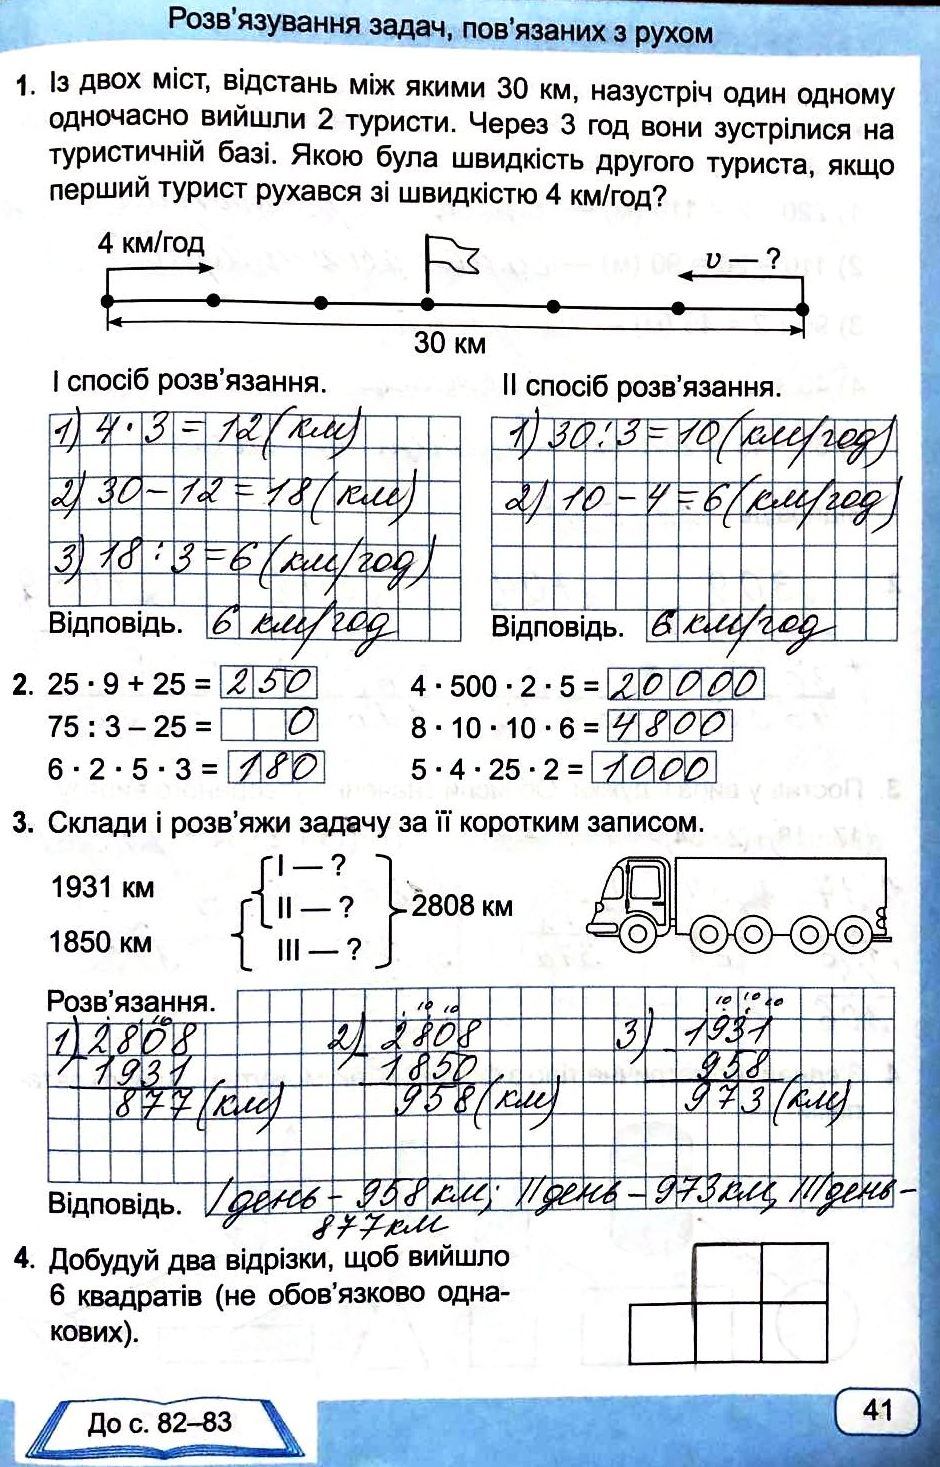 Розв'язування задач, пов'язаних з рухом
1. Із двох міст, відстань між якими 30 км, назустріч один одному
одночасно вийшли 2 туристи. Через 3 год вони зустрілися на
туристичній базі. Якою була швидкість другого туриста, якщо
перший турист рухався зі швидкістю 4 км/год?
4 км/год
v — ?
30 км
І спосіб розв'язання.
1) 4 · 3 = 12 (км)
2) 30 – 12 = 18 (км)
3) 18 : 3 = 6 (км/год)
Відповідь. 6 км/год
ІІ спосіб розв'язання.
1) 30 : 3 = 10 (км/год)
2) 10 – 4 = 6 (км/год)
Відповідь. 6 км/год
2. 25 · 9 + 25 = 250
75 : 3 – 25 = 0
6 · 2 · 5 · 3 = 180
4 · 500 · 2 · 5 = 20000
8 · 10 · 10 · 6 = 4800
5 · 4 · 25 · 2 = 1000
3. Склади і розв'яжи задачу за її коротким записом.
1931 км
1850 км
І — ?
ІІ — ?
ІІІ — ?
2808 км
Розв'язання.
10
1) 2808
1931
877 (км)
10 10
2) 2808
1850
958 (км)
10 10 10
3) 1931
958
973 (км)
Відповідь. І день – 958 км; ІІ день – 973 км, ІІІ день –
877 км
4. Добудуй два відрізки, щоб вийшло
6 квадратів (не обов'язково одна-
кових).
До с. 82–83
41